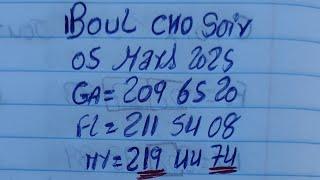 BOUL CHO SOIR
05 MARS 2025
GA = 209 65 20
FL = 211 54 08
NY = 219 44 74